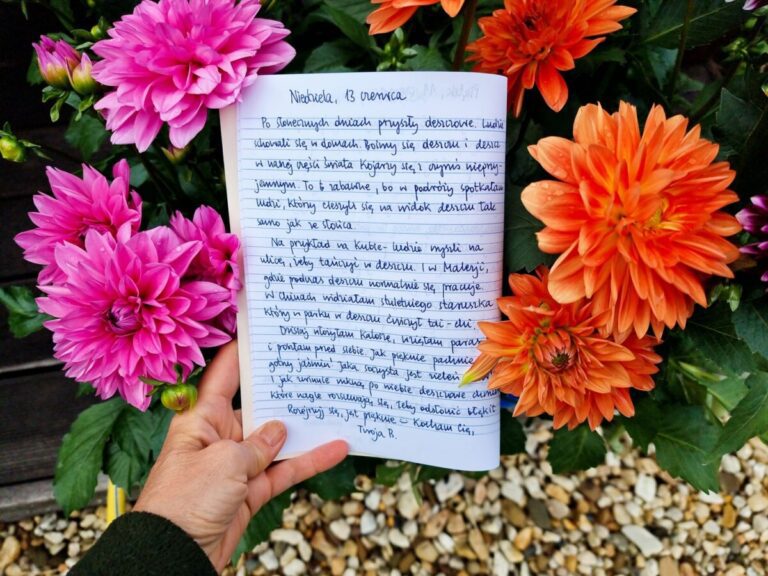 Niedziela, 13 czerwca
Po słonecznych dniach przyszły deszczowe. Ludzie
chowali się w domach. Boimy się deszczu i deszcz
w naszej części świata kojarzy się z czymś nieprzy-
jemnym. To b. zabawne, bo w podróży spotkałam
ludzi, którzy cieszyli się na widok deszczu tak
samo jak ze słońca.
Na przykład na Kubie - ludzie wyszli na
ulicę, żeby tańczyć w deszczu. I w Malezji,
gdzie podczas deszczu normalnie się pracuje.
W Chinach widziałam stuletniego staruszka
który w parku w deszczu ćwiczył tai-chi.
Dzisiaj włożyłam kalosze, wzięłam parasol
i poszłam przed siebie. Jak pięknie pachnie
jaśmin! Jaka soczysta jest zieleń
I jak suną po niebie deszczowe
które nagle rozsuwają się, żeby odsłonić błękit.
Rozejrzyj się, jest pięknie. Kocham Cię,
Twoja B.